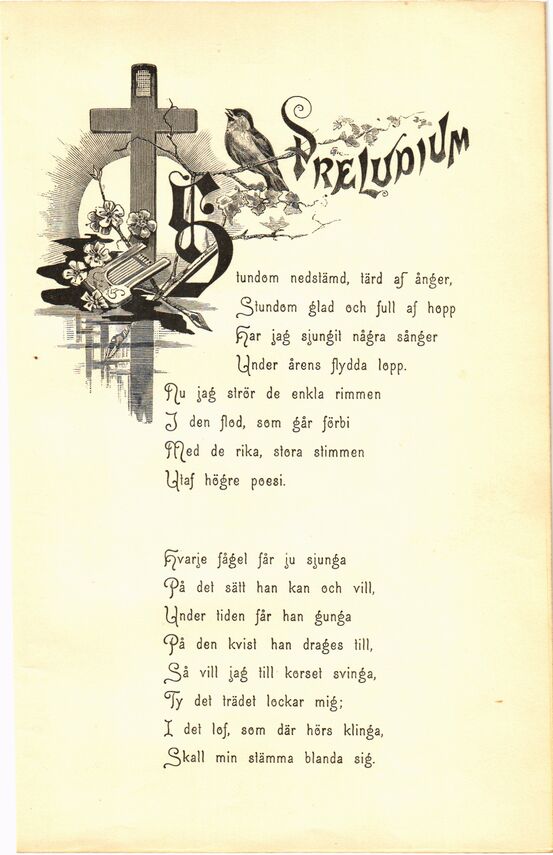 PRELUDIUM
Stundom nedstämd, tärd af ånger,
Stundom glad och full af hopp
Har jag sjungit några sånger
Under årens flydda lopp.
Nu jag strör de enkla rimmen
I den flod, som går förbi
Med de rika, stora stimmen
Utaf högre poesi.

Hvarje fågel får ju sjunga
På det sätt han kan och vill,
Under tiden får han gunga
På den kvist han drages till,
Så vill jag till korset svinga,
Ty det trädet lockar mig;
I det lof, som där hörs klinga,
Skall min stämma blanda sig.